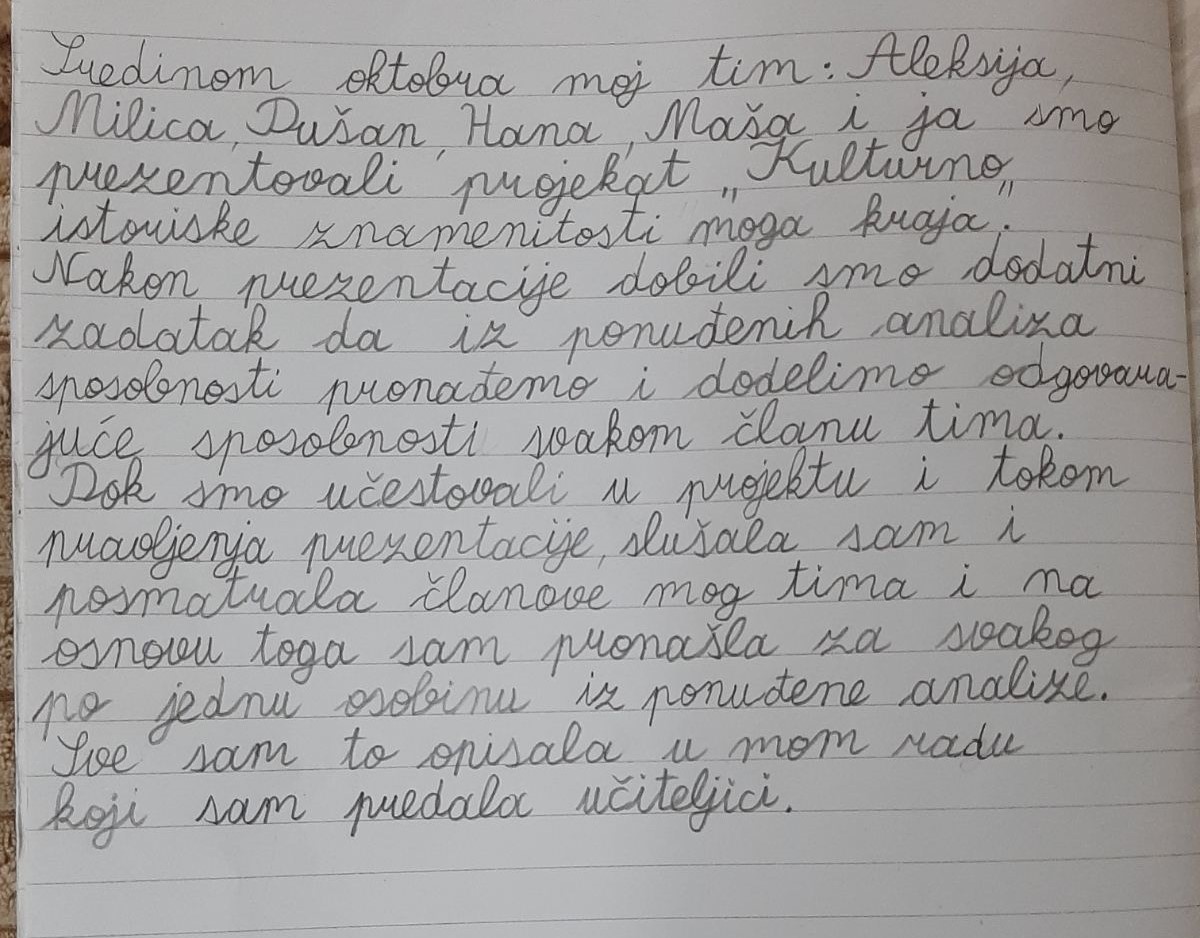 Sredinom oktobra moj tim: Aleksija,
Milica, Dušan, Hana, Maša i ja smo
prezentovali projekat „Kulturno
istoriske znamenitosti moga kraja".
Nakon prezentacije dobili smo dodatni
zadatak da iz ponuđenih analiza
sposobnosti pronađemo i dodelimo odgovara-
juće sposobnosti svakom članu tima.
Dok smo učestovali u projektu i tokom
pravljenja prezentacije, slušala sam i
posmatrala članove mog tima i na
osnovu toga sam pronašla za svakog
po jednu osobinu iz ponuđene analize.
Sve sam to opisala u mom radu
koji sam predala učiteljici.